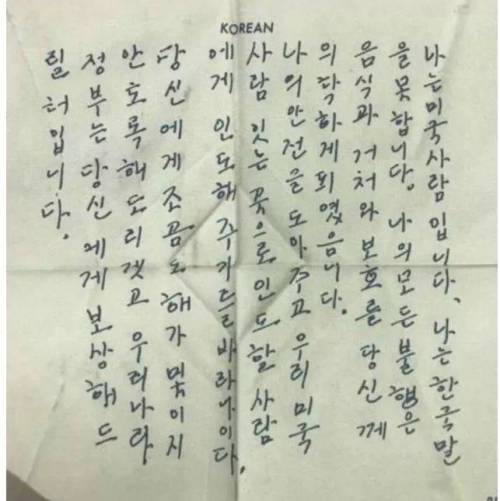 KOREAN
나는미국사람입니다. 나는한국말
을못합니다. 나의모든불행은
음식과 거처와 보호를 당신께
의탁하게되였음니다.
나의안전을 도아주고 우리미국
사람 잇는 곳으로인도할 사람
에게 인도해주기를바라나이다.
당신에게조곰도해가밋이지
안토록해도리겟고 우리나라
정부는당신에게보상해드
릴터입니다.